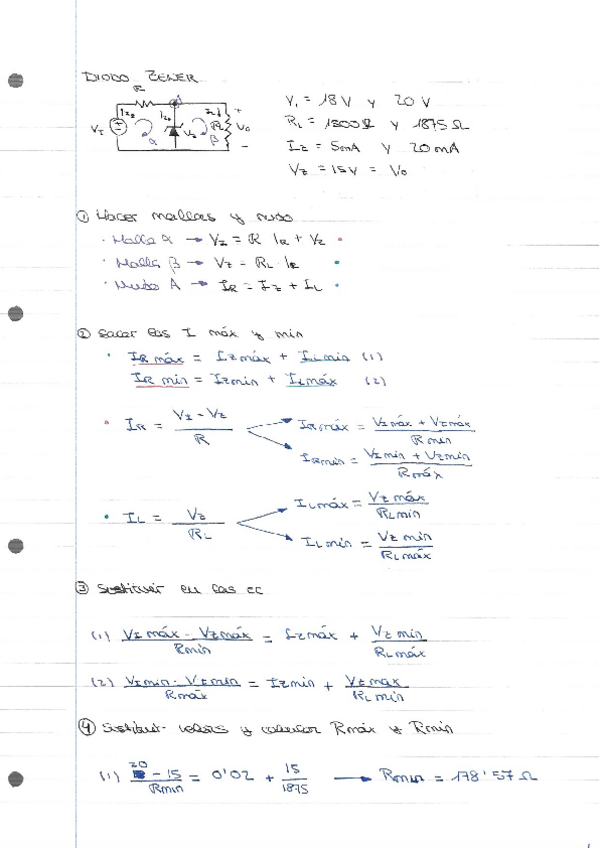 DIODO ZENER
R
A
I_R
I_Z
I_L
V_I
α
V_Z
β
R_L
V_O
+
-
V_I = 18V y 20V
R_L = 1500Ω y 1875Ω
I_Z = 5mA y 20mA
V_Z = 15V = V_O
① Hacer mallas y nudo
· Malla α → V_I = R I_R + V_Z
· Malla β → V_Z = R_L · I_R
· Nudo A → I_R = I_Z + I_L
② Sacar las I máx y min
· I_R máx = I_Z máx + I_L min (1)
I_R min = I_Z min + I_L máx (2)
· I_R = (V_I - V_Z) / R
I_R máx = (V_I máx + V_Z máx) / R min
I_R min = (V_I min + V_Z min) / R máx
· I_L = V_Z / R_L
I_L máx = V_Z máx / R_L min
I_L min = V_Z min / R_L máx
③ Sustituir en las ec
(1) (V_I máx - V_Z máx) / R min = I_Z máx + V_Z min / R_L máx
(2) (V_I min - V_Z min) / R máx = I_Z min + V_Z max / R_L min
④ Sustituir valores y calcular R máx y R min
(1) (20 - 15) / R min = 0'02 + 15 / 1875 → R min = 178'57 Ω